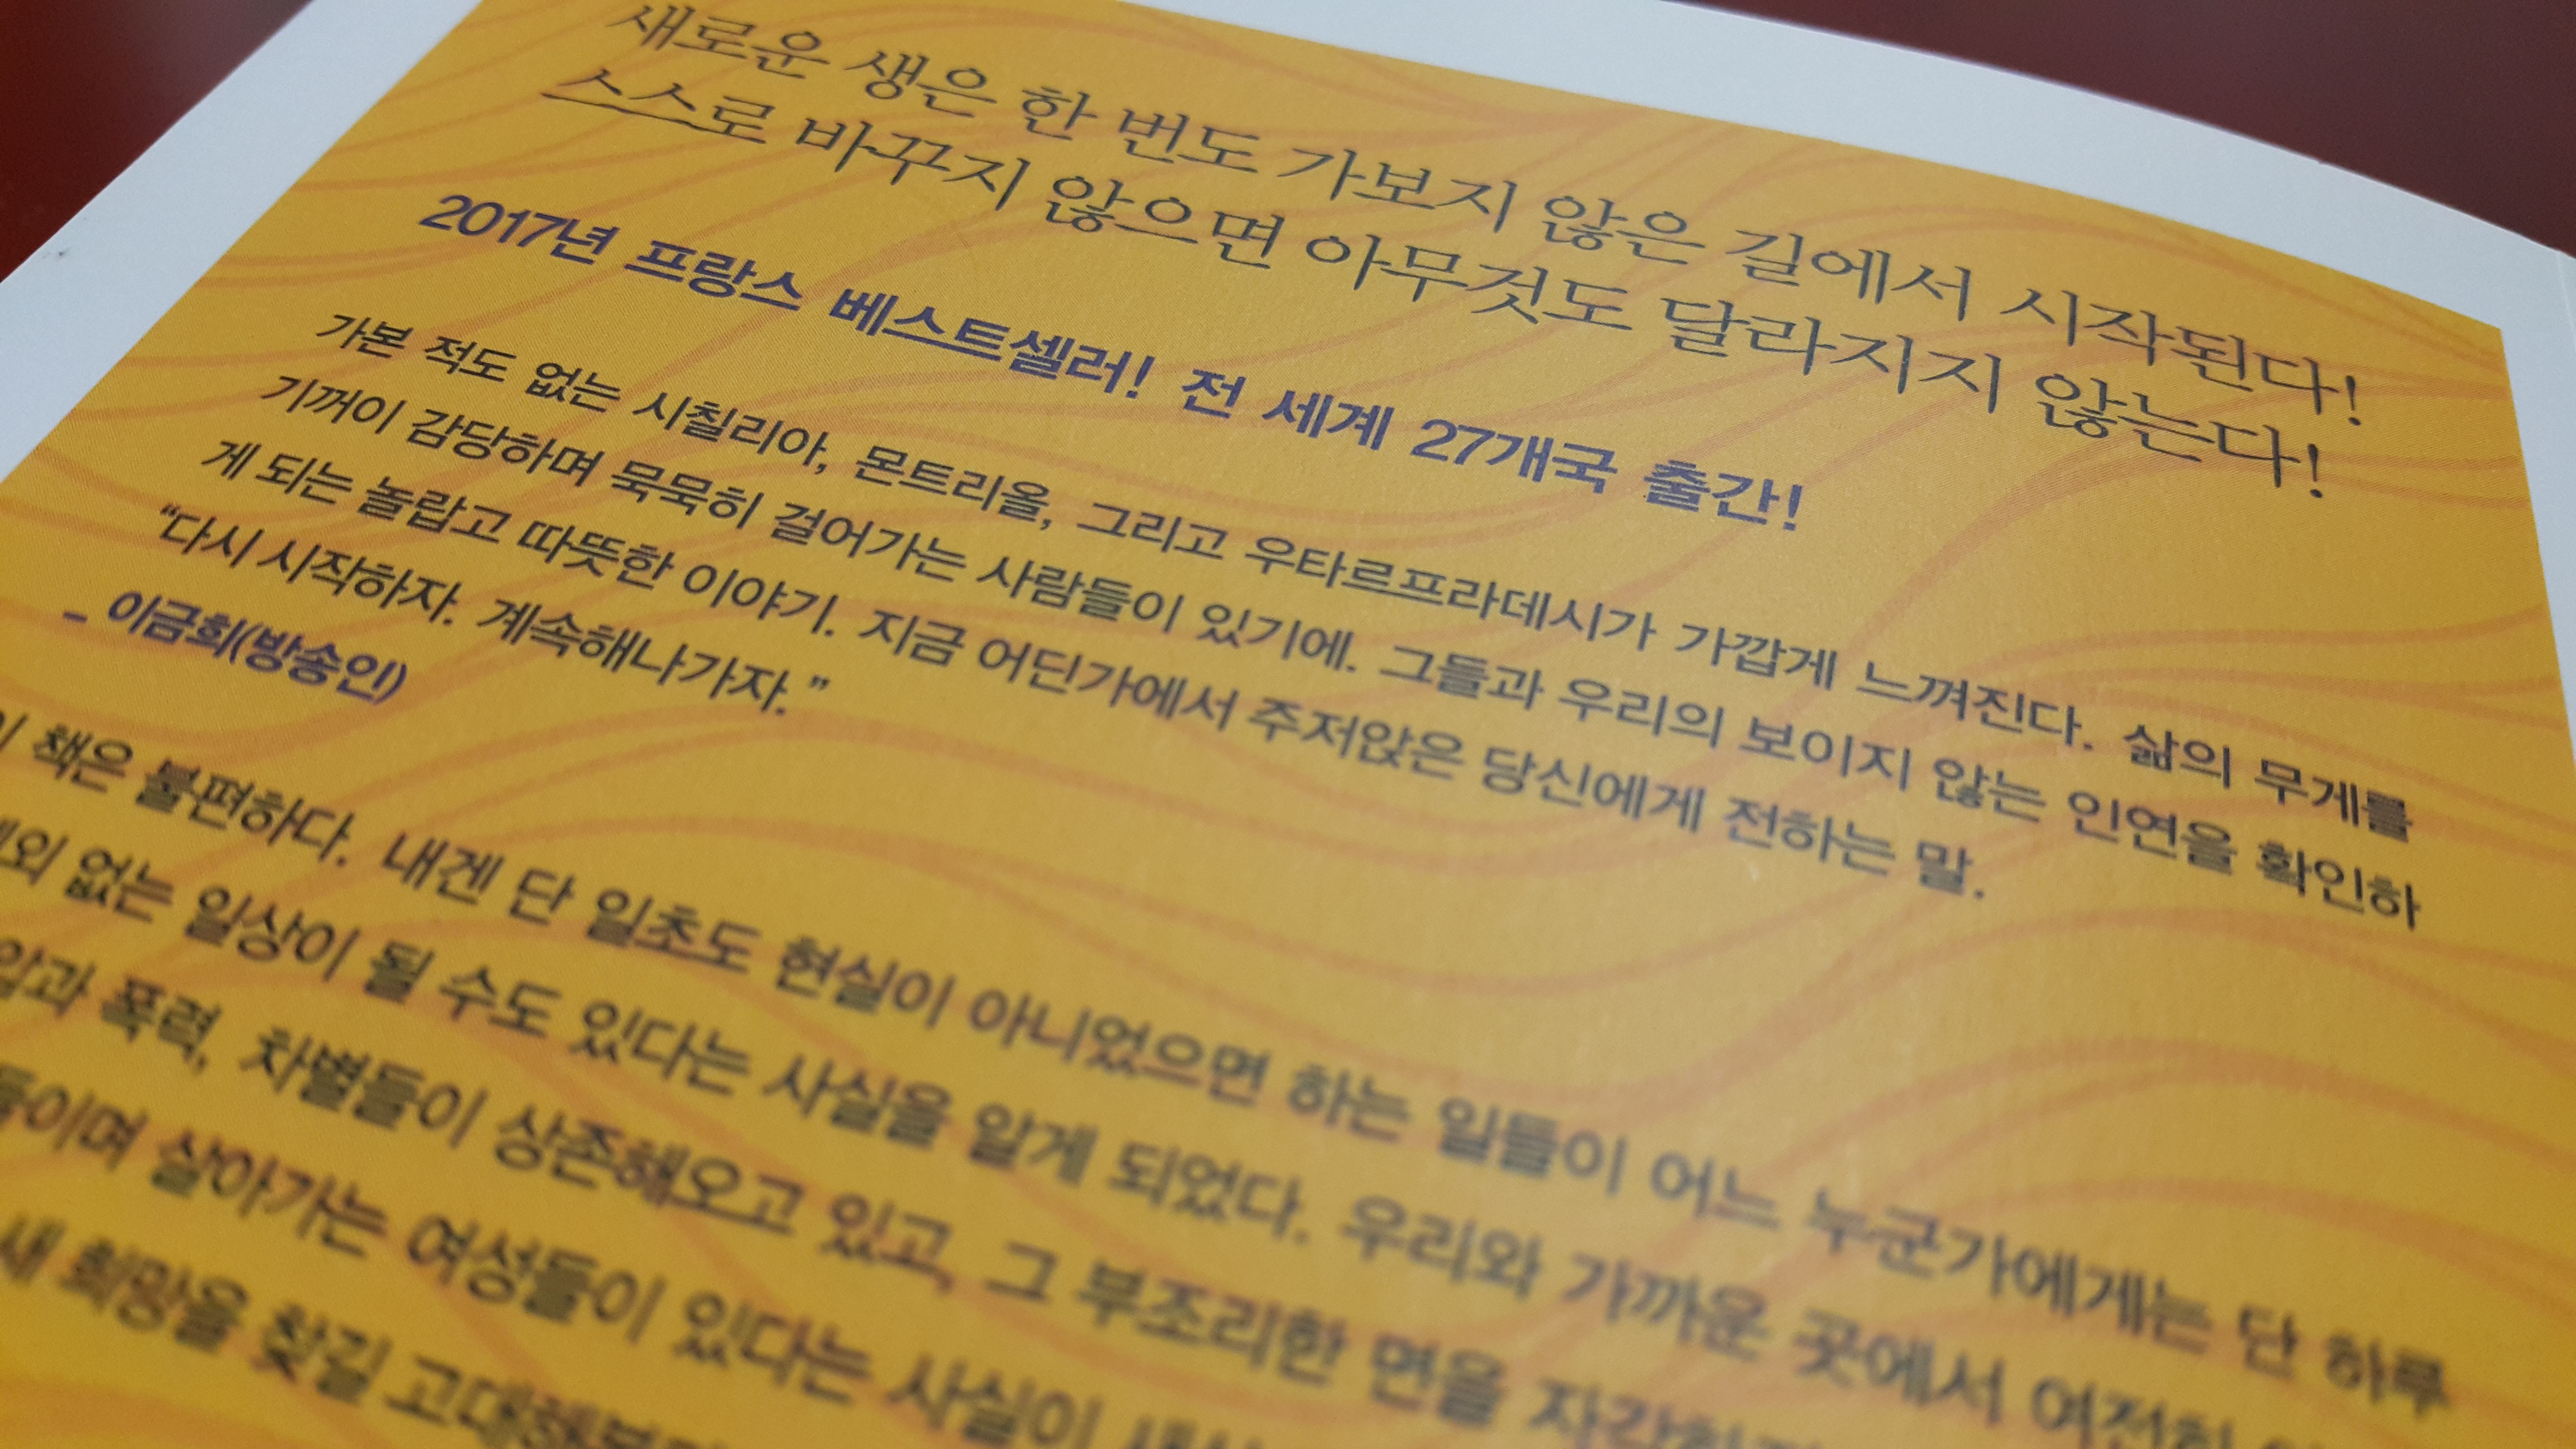 새로운 생은 한 번도 가보지 않은 길에서 시작된다!
스스로 바꾸지 않으면 아무것도 달라지지 않는다!
2017년 프랑스 베스트셀러! 전 세계 27개국 출간!
가본 적도 없는 시칠리아, 몬트리올, 그리고 우타르프라데시가 가깝게 느껴진다. 삶의 무게를
기꺼이 감당하며 묵묵히 걸어가는 사람들이 있기에. 그들과 우리의 보이지 않는 인연을 확인하
게 되는 놀랍고 따뜻한 이야기. 지금 어딘가에서 주저앉은 당신에게 전하는 말.
“다시 시작하자. 계속해나가자.”
_ 이금희(방송인)
책은 불편하다. 내겐 단 일초도 현실이 아니었으면 하는 일들이 어느 누군가에게는 단 하루
없는 일상이 될 수도 있다는 사실을 알게 되었다. 우리와 가까운 곳에서 여전히
폭력, 차별들이 상존해오고 있고, 그 부조리한 면을
살아가는 여성들이 있다는 사실이
새 희망을 찾길